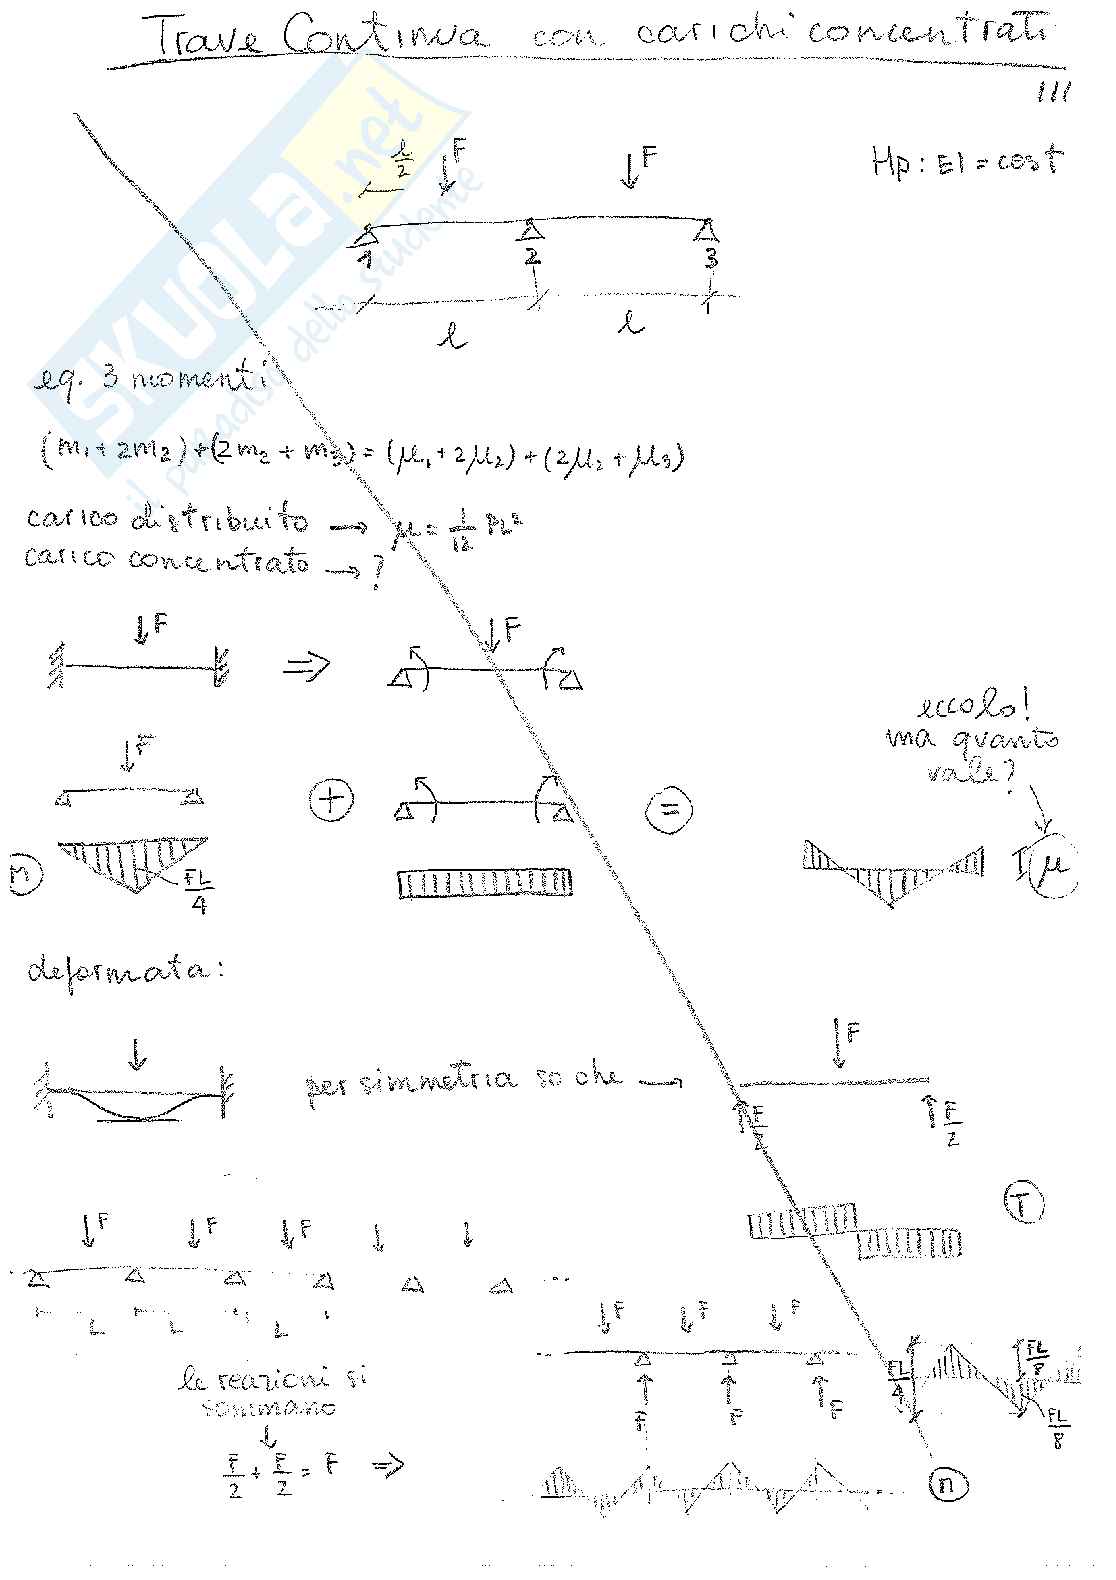 Trave Continua con carichi concentrati
III
Hp: EI = cost
l/2 F F
1 2 3
l l
eq. 3 momenti
(m₁ + 2m₂) + (2m₂ + m₃) = (μ₁ + 2μ₂) + (2μ₂ + μ₃)
carico distribuito → μ = 1/12 pl²
carico concentrato → ?
F ⇒ F
eccolo!
ma quanto
vale?
F + =
M FL/4 μ
deformata:
per simmetria so che → F
F/2 F/2
T
F F F
L L L
F F F
le reazioni si
sommano
F F F
F/2 + F/2 = F ⇒
FL/4 FL/8
FL/8
M
SKUOLA.net
il paradiso dello studente